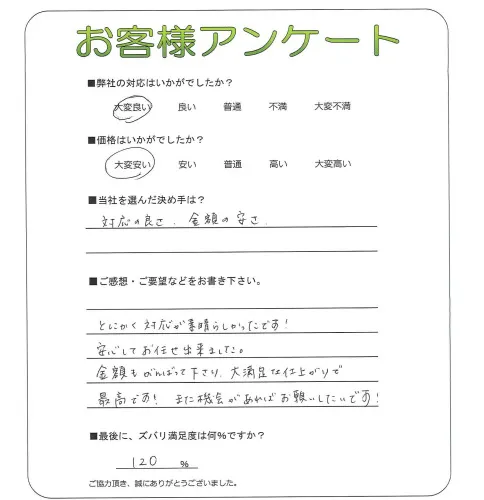 お客様アンケート
■弊社の対応はいかがでしたか？
大変良い 良い 普通 不満 大変不満
■価格はいかがでしたか？
大変安い 安い 普通 高い 大変高い
■当社を選んだ決め手は？
対応の良さ、金額の安さ、
■ご感想・ご要望などをお書き下さい。
とにかく対応が素晴らしかったです！
安心してお任せ出来ました。
金額もがんばって下さり、大満足な仕上がりで
最高です！また機会があればお願いしたいです！
■最後に、ズバリ満足度は何%ですか？
120 %
ご協力頂き、誠にありがとうございました。